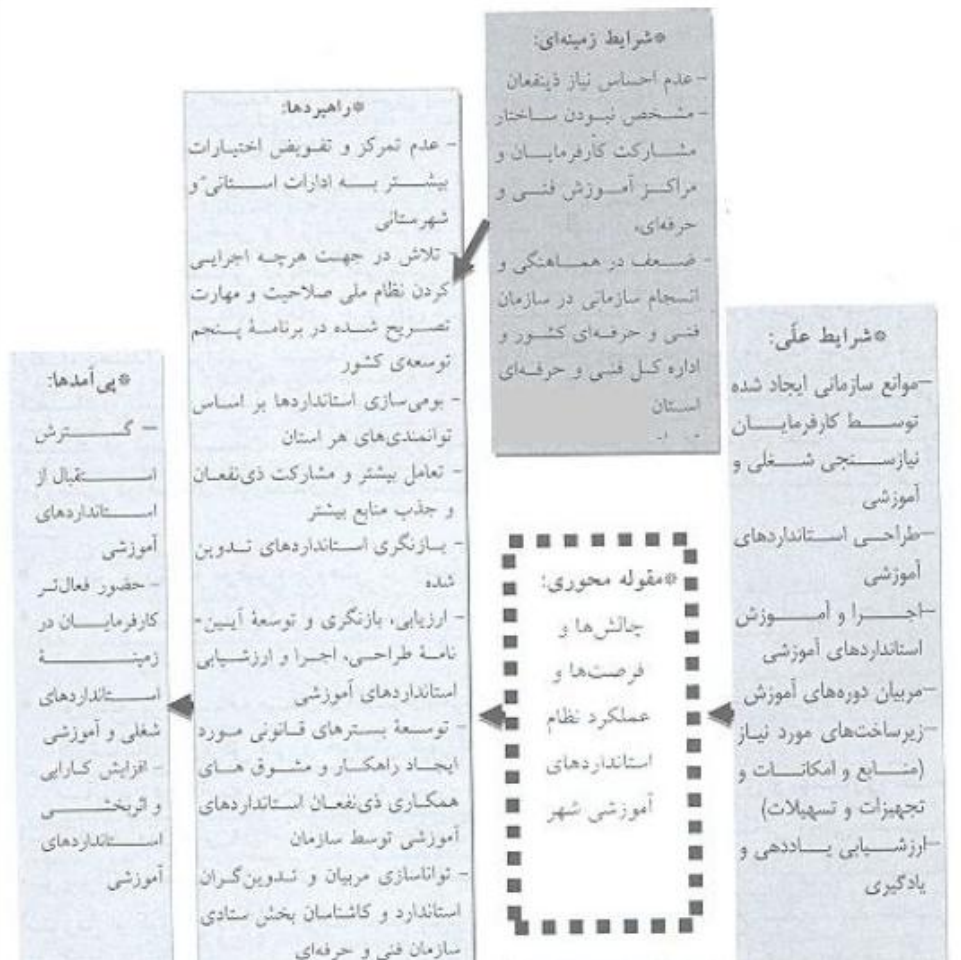 *شرایط زمینه‌ای:
- عدم احساس نیاز ذینفعان
- مشخص نبودن ساختار
مشارکت کارفرمایان و
مراکز آموزش فنی و
حرفه‌ای،
- ضعف در هماهنگی و
انسجام سازمانی در سازمان
فنی و حرفه‌ای کشور و
اداره کل فنی و حرفه‌ای
استان
*شرایط علّی:
-موانع سازمانی ایجاد شده
توسط کارفرمایان
نیازسنجی شغلی و
آموزشی
-طراحی استانداردهای
آموزشی
-اجرا و آموزش
استانداردهای آموزشی
-مربیان دوره‌های آموزش
-زیرساخت‌های مورد نیاز
(منابع و امکانات و
تجهیزات و تسهیلات)
-ارزشیابی یاددهی و
یادگیری
*مقوله محوری:
چالش‌ها و
فرصت‌ها و
عملکرد نظام
استانداردهای
آموزشی شهر
*راهبردها:
- عدم تمرکز و تفویض اختیارات
بیشتر به ادارات استانی و
شهرستانی
- تلاش در جهت هرچه اجرایی
کردن نظام ملی صلاحیت و مهارت
تصریح شده در برنامهٔ پنجم
توسعه‌ی کشور
- بومی‌سازی استانداردها بر اساس
توانمندی‌های هر استان
- تعامل بیشتر و مشارکت ذی‌نفعان
و جذب منابع بیشتر
- بازنگری استانداردهای تدوین
شده
- ارزیابی، بازنگری و توسعهٔ آیین-
نامهٔ طراحی، اجرا و ارزشیابی
استانداردهای آموزشی
- توسعهٔ بسترهای قانونی مورد
ایجاد راهکار و مشوق های
همکاری ذی‌نفعان استانداردهای
آموزشی توسط سازمان
- تواناسازی مربیان و تدوین‌گران
استاندارد و کاشناسان بخش ستادی
سازمان فنی و حرفه‌ای
*پی‌آمدها:
- گسترش
استقبال از
استانداردهای
آموزشی
- حضور فعال‌تر
کارفرمایان در
زمینهٔ
استانداردهای
شغلی و آموزشی
- افزایش کارایی
و اثربخشی
استانداردهای
آموزشی